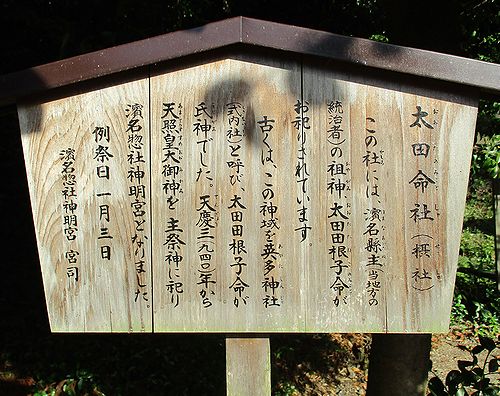 太田命社（摂社）
この社には、濱名縣主（当地方の
統治者）の祖神、太田田根子命が
お祀りされています。
古くは、この神域を英多神社
（式内社）と呼び、太田田根子命が
氏神でした。天慶三（九四〇）年から
天照皇大御神を主祭神に祀り
濱名惣社神明宮となりました。
例祭日 一月三日
濱名惣社神明宮 宮司